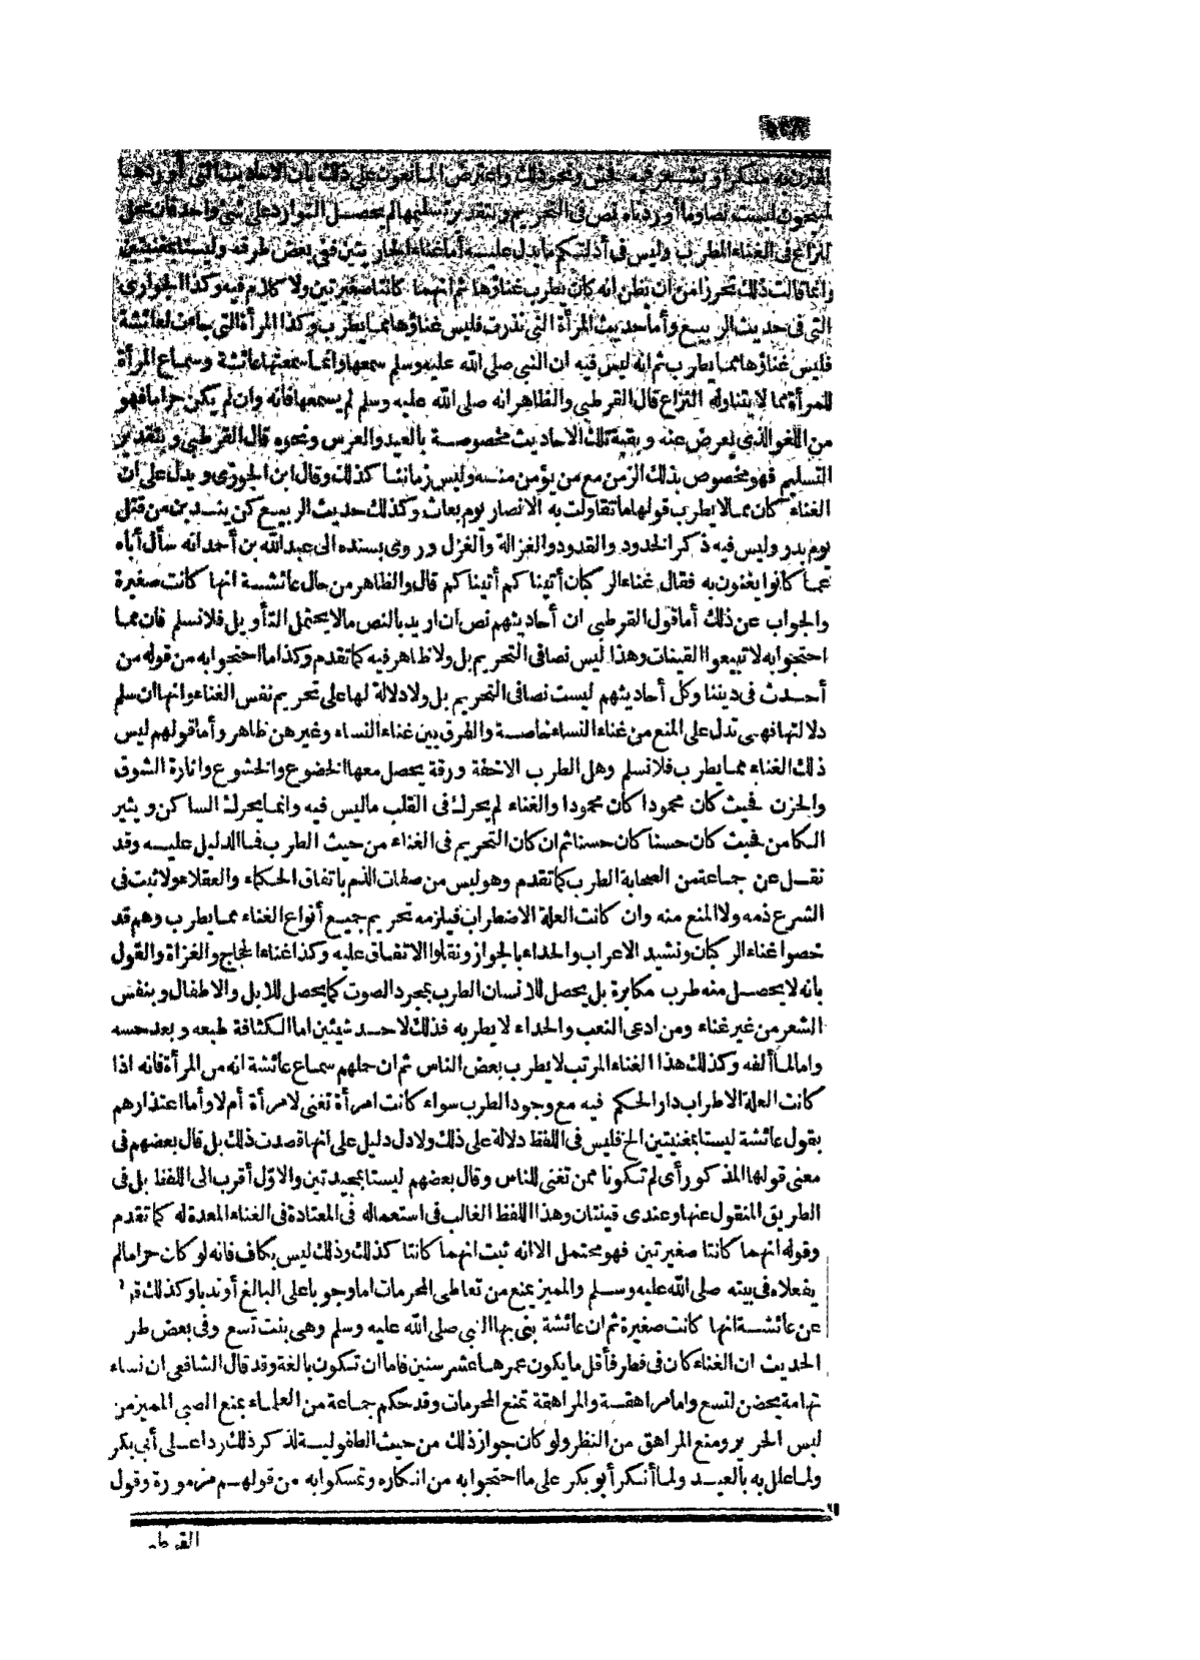 اقترن به منكر أو بشعر فيه فحش ونحو ذلك واعترض المانعون على ذلك بأن الاحاديث التي أوردها
المبيحون ليست نصا وما أوردناه نص في التحريم وبتقدير تسليمها لم يحصل التوارد على شئ واحد فان محل
النزاع في الغناء المطرب وليس في أدلتكم ما يدل عليه أما غناء الجاريتين ففي بعض طرقه وليستا بمغنيتين
وانما قالت ذلك تحرزا من أن يظن انه كان يطرب غناؤهما ثم انهما كانتا صغيرتين ولا كلام فيه وكذا الجواري
التي في حديث الربيع وأما حديث المرأة التي نذرت فليس غناؤها مما يطرب وكذا المرأة التي جاءت لعائشة
فليس غناؤها مما يطرب ثم انه ليس فيه ان النبي صلى الله عليه وسلم سمعها وانما سمعتها عائشة وسماع المرأة
للمرأة مما لا يتناوله النزاع قال القرطبي والظاهر انه صلى الله عليه وسلم لم يسمعها فانه وان لم يكن حراما فهو
من اللغو الذي يعرض عنه وبقية تلك الاحاديث مخصوصة بالعيد والعرس ونحوه قال القرطبي وبتقدير
التسليم فهو مخصوص بذلك الزمن مع من يؤمن منه وليس زماننا كذلك وقال ابن الجوزي ويدل على ان
الغناء كان مما لا يطرب قولها مما تقاولت به الانصار يوم بعاث وكذلك حديث الربيع كن يندبن من قتل
يوم بدر وليس فيه ذكر الخدود والقدود والغزالة والغزل وروى بسنده الى عبد الله بن أحمد انه سأل أباه
عما كانوا يغنون به فقال غناء الركبان أتيناكم أتيناكم قال والظاهر من حال عائشة انها كانت صغيرة
والجواب عن ذلك أما قول القرطبي ان أحاديثهم نص ان اريد بالنص ما لا يحتمل التأويل فلا نسلم فان مما
احتجوا به لا تبيعوا القينات وهذا ليس نصا في التحريم بل ولا ظاهر فيه كما تقدم وكذا ما احتجوا به من قوله من
أحدث في ديننا وكل أحاديثهم ليست نصا في التحريم بل ولا دلالة لها على تحريم نفس الغناء وانها ان سلم
دلالتها فهي تدل على المنع من غناء النساء خاصة والفرق بين غناء النساء وغيرهن ظاهر وأما قولهم ليس
ذلك الغناء مما يطرب فلا نسلم وهل الطرب الا خفة ورقة يحصل معها الخضوع والخشوع واثارة الشوق
والحزن فحيث كان محمودا كان محمودا والغناء لم يحرك في القلب ما ليس فيه وانما يحرك الساكن ويثير
الكامن فحيث كان حسنا كان حسنا ثم ان كان التحريم في الغناء من حيث الطرب فما الدليل عليه وقد
نقل عن جماعة من الصحابة الطرب كما تقدم وهو ليس من صفات الذم باتفاق الحكماء والعقلاء ولا ثبت في
الشرع ذمه ولا المنع منه وان كانت العلة الاضطراب فيلزمه تحريم جميع أنواع الغناء مما يطرب وهم قد
خصوا غناء الركبان ونشيد الاعراب والحداء بالجواز ونقلوا الاتفاق عليه وكذا غناء الحجاج والغزاة والقول
بانه لا يحصل منه طرب مكابرة بل يحصل للانسان الطرب بمجرد الصوت كما يحصل للابل والاطفال وبنفس
الشعر من غير غناء ومن ادعى النعب والحداء لا يطربه فذلك لاحد شيئين اما لكثافة طبعه وبعد حسه
واما لما ألفه وكذلك هذا الغناء المرتب لا يطرب بعض الناس ثم ان حملهم سماع عائشة انه من المرأة فانه اذا
كانت العلة الاطراب دار الحكم فيه مع وجود الطرب سواء كانت امرأة تغني لامرأة أم لا وأما اعتذارهم
بقول عائشة ليستا بمغنيتين الخ فليس في اللفظ دلالة على ذلك ولا دل دليل على انها قصدت ذلك بل قال بعضهم في
معنى قولها المذكور أي لم تكونا ممن تغني للناس وقال بعضهم ليستا بمجيدتين والاول أقرب الى اللفظ بل في
الطريق المنقول عنها وعندي قينتان وهذا اللفظ الغالب في استعماله في المعتادة في الغناء المعدة له كما تقدم
وقوله انهما كانتا صغيرتين فهو محتمل الا انه ثبت انهما كانتا كذلك وذلك ليس بكاف فانه لو كان حراما لم
يفعلاه في بيته صلى الله عليه وسلم والمميز يمنع من تعاطى المحرمات اما وجوبا على البالغ أو ندبا وكذلك
عن عائشة انها كانت صغيرة ثم ان عائشة بنى بها النبي صلى الله عليه وسلم وهي بنت تسع وفي بعض طر
الحديث ان الغناء كان في فطر فأقل ما يكون عمرها عشر سنين فاما ان تكون بالغة وقد قال الشافعي ان نساء
تهامة يحضن لتسع واما مراهقة والمراهقة تمنع المحرمات وقد حكم جماعة من العلماء بمنع الصبي المميز من
لبس الحرير ومنع المراهق من النظر ولو كان جواز ذلك من حيث الطفولية لذكر ذلك ردا على أبي بكر
ولما علل به بالعيد ولما أنكر أبو بكر على ما احتجوا به من انكاره وتمسكوا به من قولهم مزمورة وقول